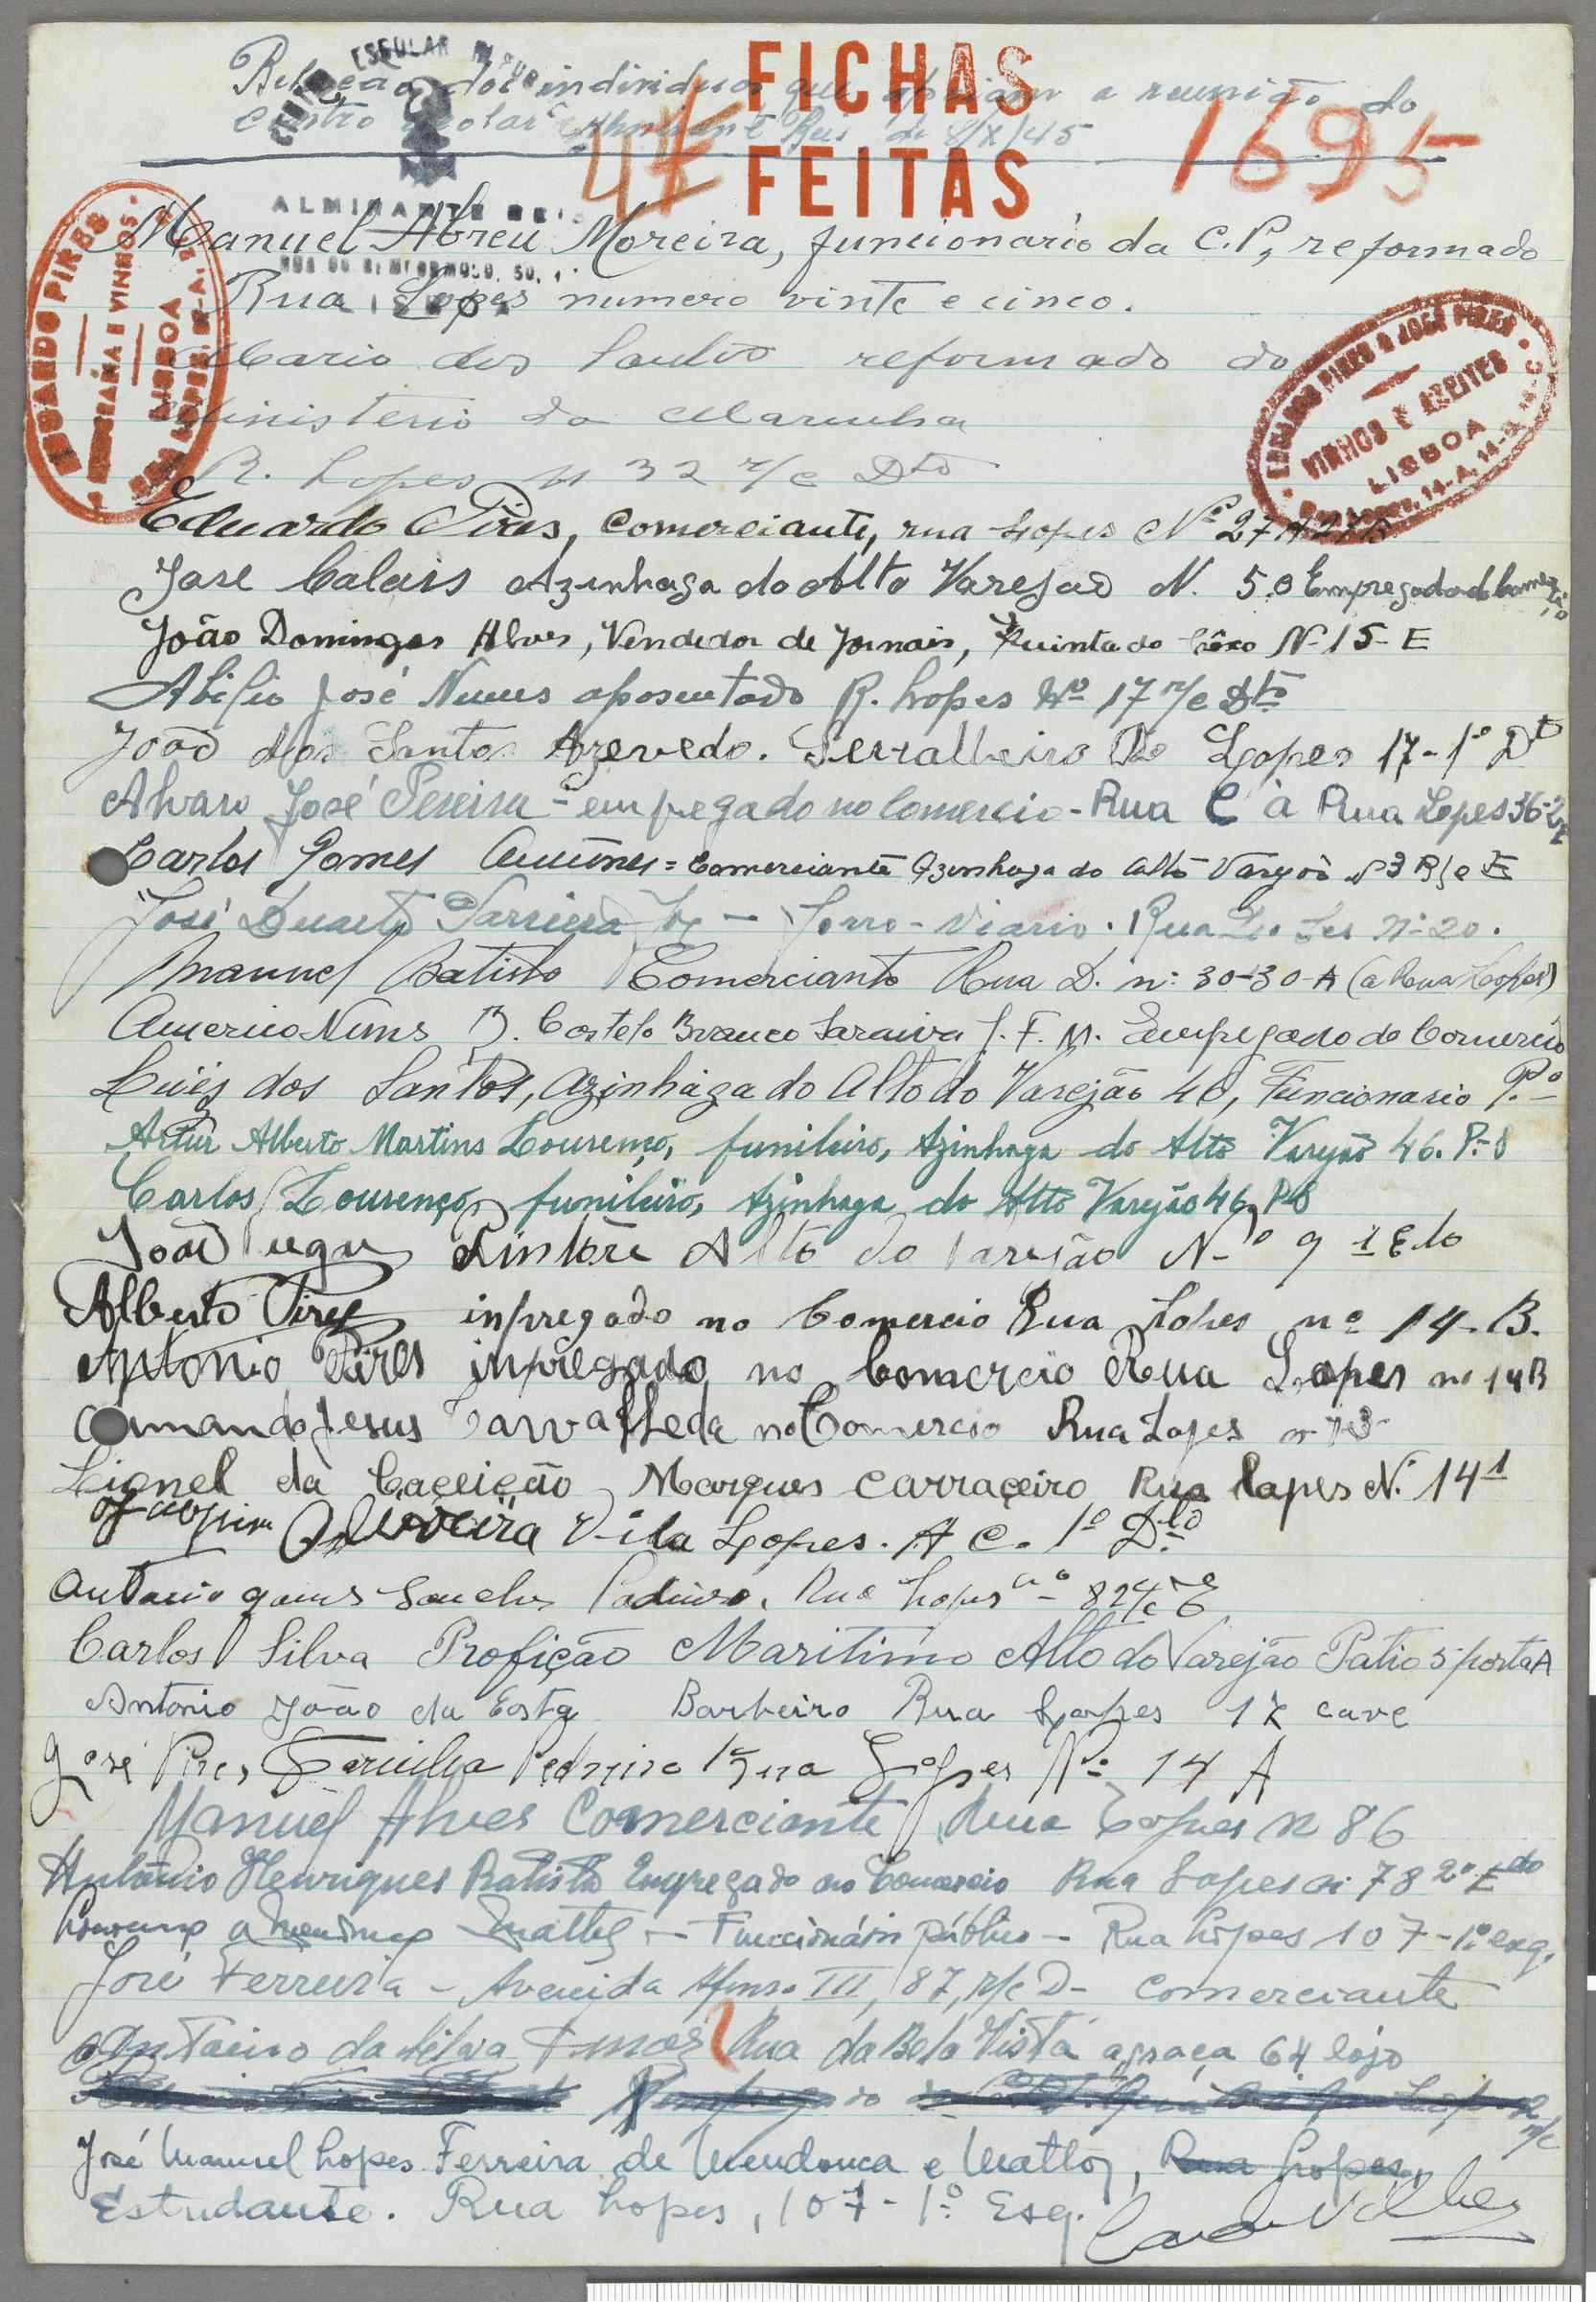 FICHAS
FEITAS
1695
Relação dos individuos que apoiam a reunião do
Centro Escolar Almirante Reis de 8/X/45
ESCOLAR
ALMIRANTE REIS
Manuel Abreu Moreira, funcionario da C.P, reformado
Rua Lopes numero vinte e cinco.
EDUARDO PIRES
LISBOA
Mario dos Santos reformado do
Ministerio da Marinha
R. Lopes n 32 r/c Dto
EDUARDO PIRES & JOSÉ PIRES
VINHOS E AZEITES
LISBOA
Eduardo Pires, Comerciante, rua Lopes Nº 27 A 27 B
Jose Calais Azinhaga do Alto Varejao N. 50 Empregado do Comercio
João Domingos Alves, Vendedor de Jornais, Quinta do Côxo N-15-E
Abilio José Nunes aposentado R. Lopes Nº 17 r/c Dto
João dos Santos Azevedo. Serralheiro Lopes 17-1º Dt
Alvaro José Pereira - empregado no Comercio - Rua C à Rua Lopes 36-2
Carlos Gomes Antunes = Comerciante Azinhaga do Alto Varejão nº 3 R/c E
José Duarte - Ferro-Viario. Rua Nº 20.
Manuel Batista Comerciante Rua D. nº 30-30-A (a Rua Lopes)
Americo Nunes B. Castelo Branco Saraiva J. F. M. Empregado do Comercio
Luiz dos Santos, Azinhaga do Alto do Varejão 46, Funcionario P.º
Artur Alberto Martins Lourenço, funileiro, Azinhaga do Alto Varejão 46. P.-8
Carlos Lourenço, funileiro, Azinhaga do Alto Varejão 46, P-8
João Pintôre Alto do Varejão Nº 9 1 Edo
Alberto Pires inpregado no Comercio Rua Lopes nº 14-B.
Antonio Pires inpregado no Comercio Rua Lopes nº 14B
Armando Jesus no Comercio Rua Lopes nº 13
Lionel da Caceição Marques carraceiro Rua Lopes N. 14 1
Joaquim Oliveira Vila Lopes. A C. 1º Dto
Antonio Gomes Sanches Padeiro. Rua Lopes nº 82 r/c E
Carlos Silva Profição Maritimo Alto do Varejão Patio 5 porta A
Antonio João da Costa Barbeiro Rua Lopes 17 cave
José Pires Farinha Pedreiro Rua Lopes Nº 14 A
Manuel Alves Comerciante Rua Lopes N 86
António Henriques Batista Empregado no Comercio Rua Lopes nº 78 2º Edo
Mattos - Funcionário público - Rua Lopes 107-1º esq.
José Ferreira - Avenida Afonso III, 87, r/c D- Comerciante
Antonio da Silva Rua da Bela Vista a graça 64 loja
José Manuel Lopes Ferreira de Mendonca e Mattos, Rua Lopes,
Estudante. Rua Lopes, 107-1º Esq.